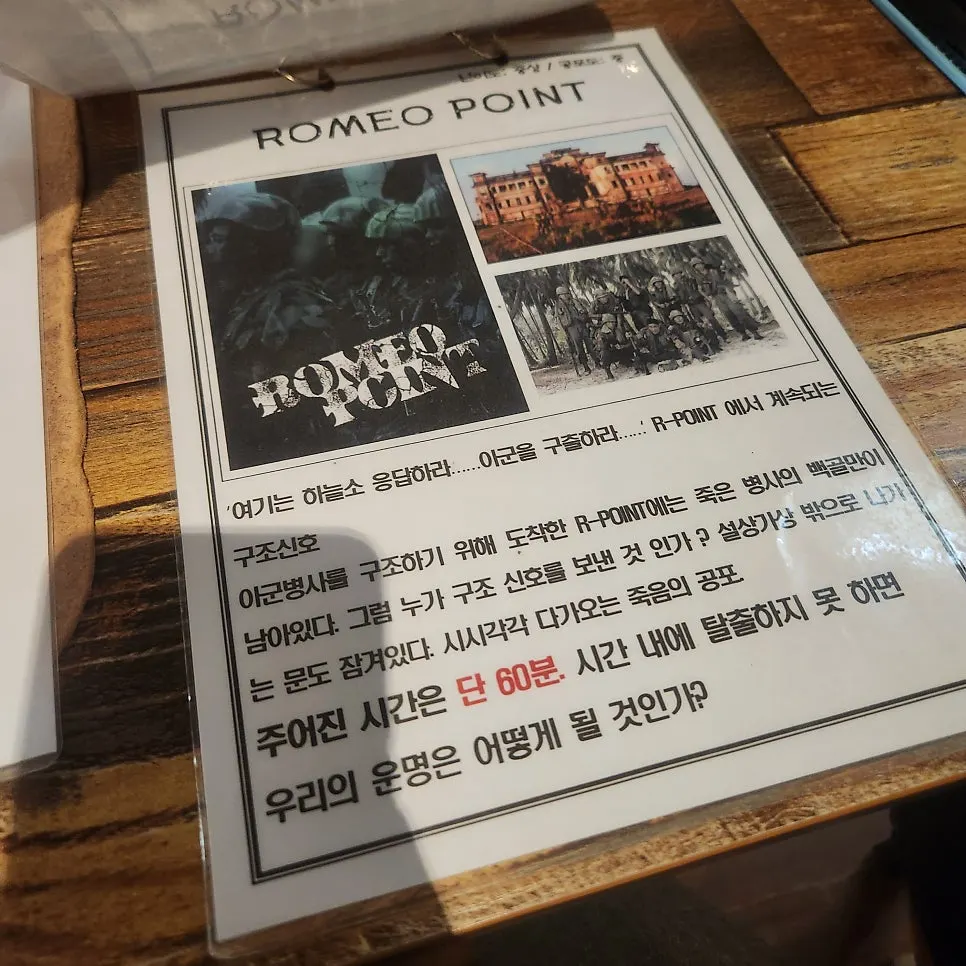 난이도: 중상 / 공포도: 중
ROMEO POINT
ROMEO
POINT
'여기는 하늘소 응답하라......아군을 구출하라......' R-POINT 에서 계속되는
구조신호
아군병사를 구조하기 위해 도착한 R-POINT에는 죽은 병사의 백골만이
남아있다. 그럼 누가 구조 신호를 보낸 것 인가 ? 설상가상 밖으로 나가
는 문도 잠겨있다. 시시각각 다가오는 죽음의 공포.
주어진 시간은 단 60분. 시간 내에 탈출하지 못 하면
우리의 운명은 어떻게 될 것인가?